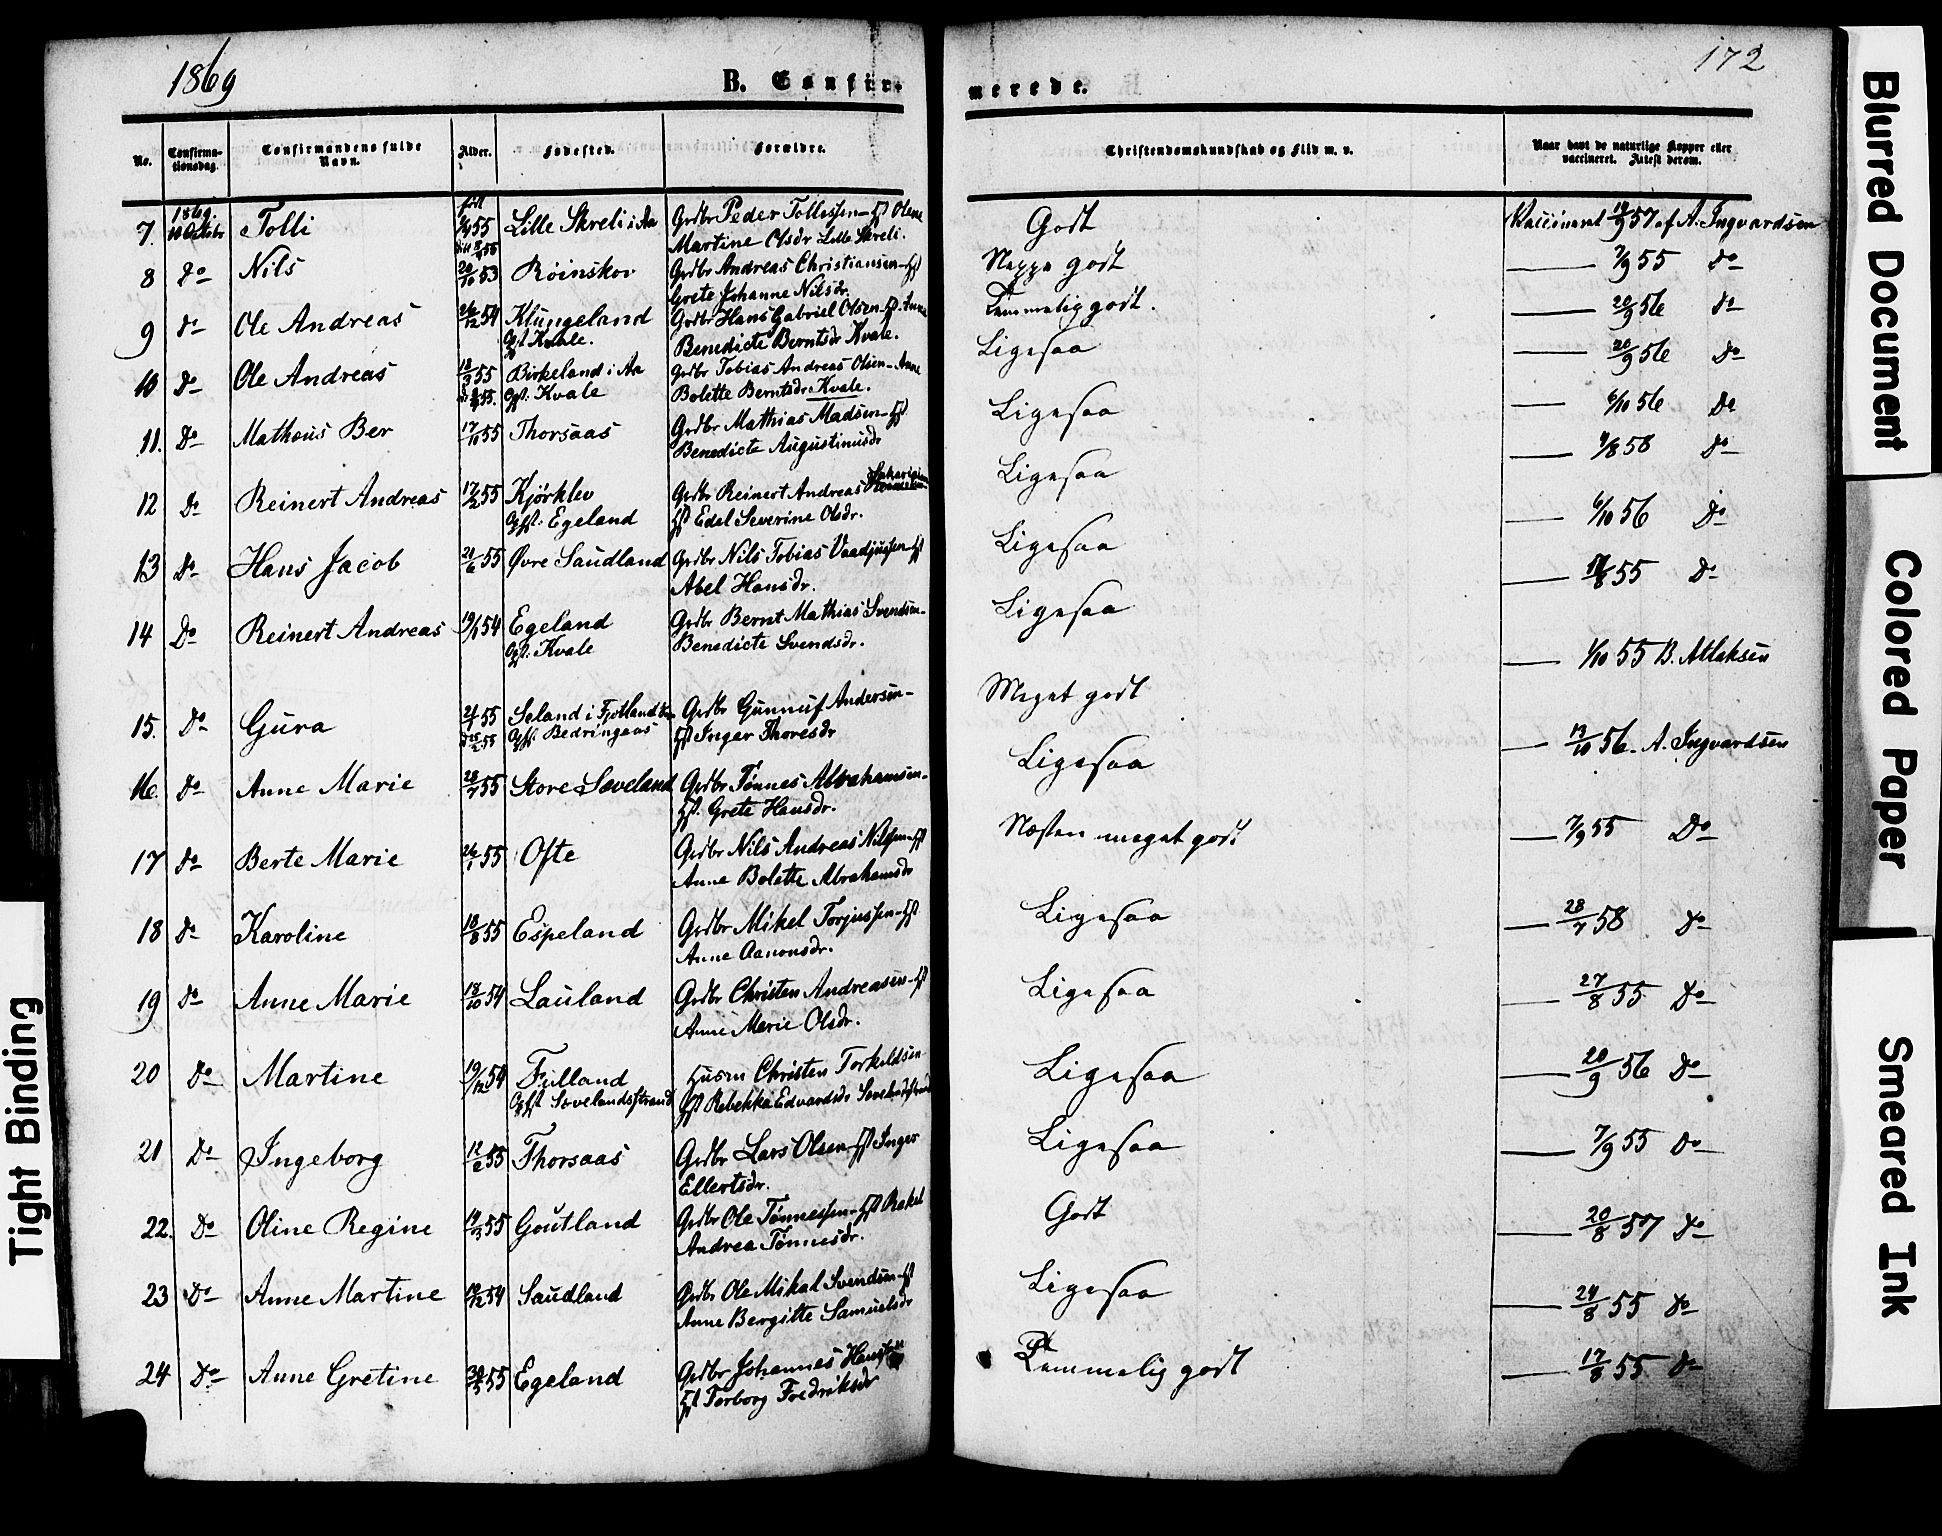 1869
B. Confir-
merede.
172
No.
Confirma-
tionsdag.
Confirmandens fulde
Navn.
Alder.
Fødested.
Forældre.
Christendomskundskab og Flid m. v.
Naar havt de naturlige Kopper eller
vaccineret. Attest derom.
7. 1869. Tolli 55 Lille Skreli i Aa Grdbr Peder Tollefsen Hst Olene
Martine Olsdr Lille Skreli.
Godt Vaccineret 57 af A. Ingvardsen
8 Do Nils 20/10 53 Röinskov Grdbr Andreas Christiansen Hst
Grete Johanne Nilsdr.
Neppe godt 7/9 55 Do
9 Do Ole Andreas 26/12 54 Klungeland Grdbr Hans Gabriel Olsen Hst. Anne
Opf Kvale. Benedicte Berntsdr Kvale.
Temmelig godt. 20/9 56 Do
10 Do Ole Andreas 18/3 55 Birkeland i Aa Grdbr Tobias Andreas Olsen Anne
Opf. Kvale Bolette Berntsdr Kvale.
Ligesaa 20/9 56 Do
11. Do Matheus Ber 17/10 55 Thorsaas Grdbr Mathias Madsen Hst
Benedicte Augustinusdr
Ligesaa 6/10 56 Do
12 Do Reinert Andreas 17/2 55 Kjörklev Grdbr Reinert Andreas
Opf: Egeland Hst Edel Severine Olsdr.
Ligesaa 58 Do
13 Do Hans Jacob 21/6 55 Øvre Saudland Grdbr Nils Tobias Hst
Abel Hansdr.
Ligesaa 6/10 56 Do
14 Do Reinert Andreas 19/1 54 Egeland Grdbr Bernt Mathias Svendsen
Opf: Kvale Benedicte Svendsdr.
Ligesaa 55 Do
15. Do Gura 55 Seland i Fjotland Grdbr Gunnuf Andersen
Opf. Bedringaas Hst Inger Thoresdr
Meget godt 1/10 55 B. Atlaksen
16. Do Anne Marie 28/7 55 Store Sæveland Grdbr Tønnes Abrahamsen
Hst. Grete Hansdr.
Ligesaa 13/10 56. A. Ingvardsen
17 Do Berte Marie 26/7 55 Ofte Grdbr Nils Andreas Nilssen Hst
Anne Bolette Abrahamsdr
Næsten meget godt 7/9 55 Do
18 Do Karoline 18/8 55 Espeland Grdbr Mikel Torjussen Hst
Anne Aanonsdr.
Ligesaa 28/7 58 Do
19 Do Anne Marie 18/10 54 Lauland Grdbr Christen Andreasen Hst
Anne Marie Olsdr.
Ligesaa 27/8 55 Do
20 Do Martine 19/12 54 Fulland Husm Christen Torkeldsen
Opf Sævelandsstrand Hst Rebekka Edvardsdr
Ligesaa 20/9 56 Do
21 Do Ingeborg 12/2 55 Thorsaas Grdbr Lars Olsen Hst Inger
Ellertsdr.
Ligesaa 7/9 55 Do
22. Do Oline Regine 55 Goutland Grdbr Ole Tønnessen Hst Rakel
Andrea Tønnesdr.
Godt 20/8 57 Do
23 Do Anne Martine 54 Saudland Grdbr Ole Mikal Svendsen Hst
Anne Bergitte Samuelsdr
Ligesaa 24/8 55 Do
24 Do Anne Gretine 55 Egeland Grdbr Johannes
Hst Torborg Fredriksdr
Temmelig godt 17/8 55 Do
Tight Binding
Blurred Document
Colored Paper
Smeared Ink